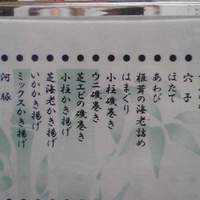 穴子
ほたて
あわび
椎茸の海老詰め
はまぐり
小柱磯巻き
ウニ磯巻き
芝エビの磯巻き
小柱かき揚げ
芝海老かき揚げ
いかかき揚げ
ミックスかき揚げ
河豚